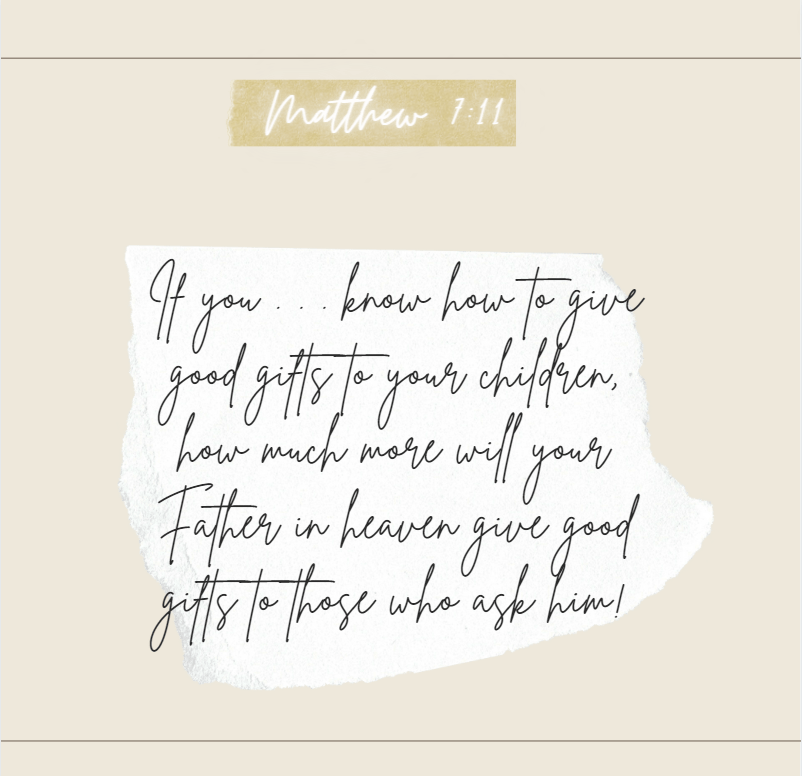 Matthew 7:11
If you . . . know how to give
good gifts to your children,
how much more will your
Father in heaven give good
gifts to those who ask him!